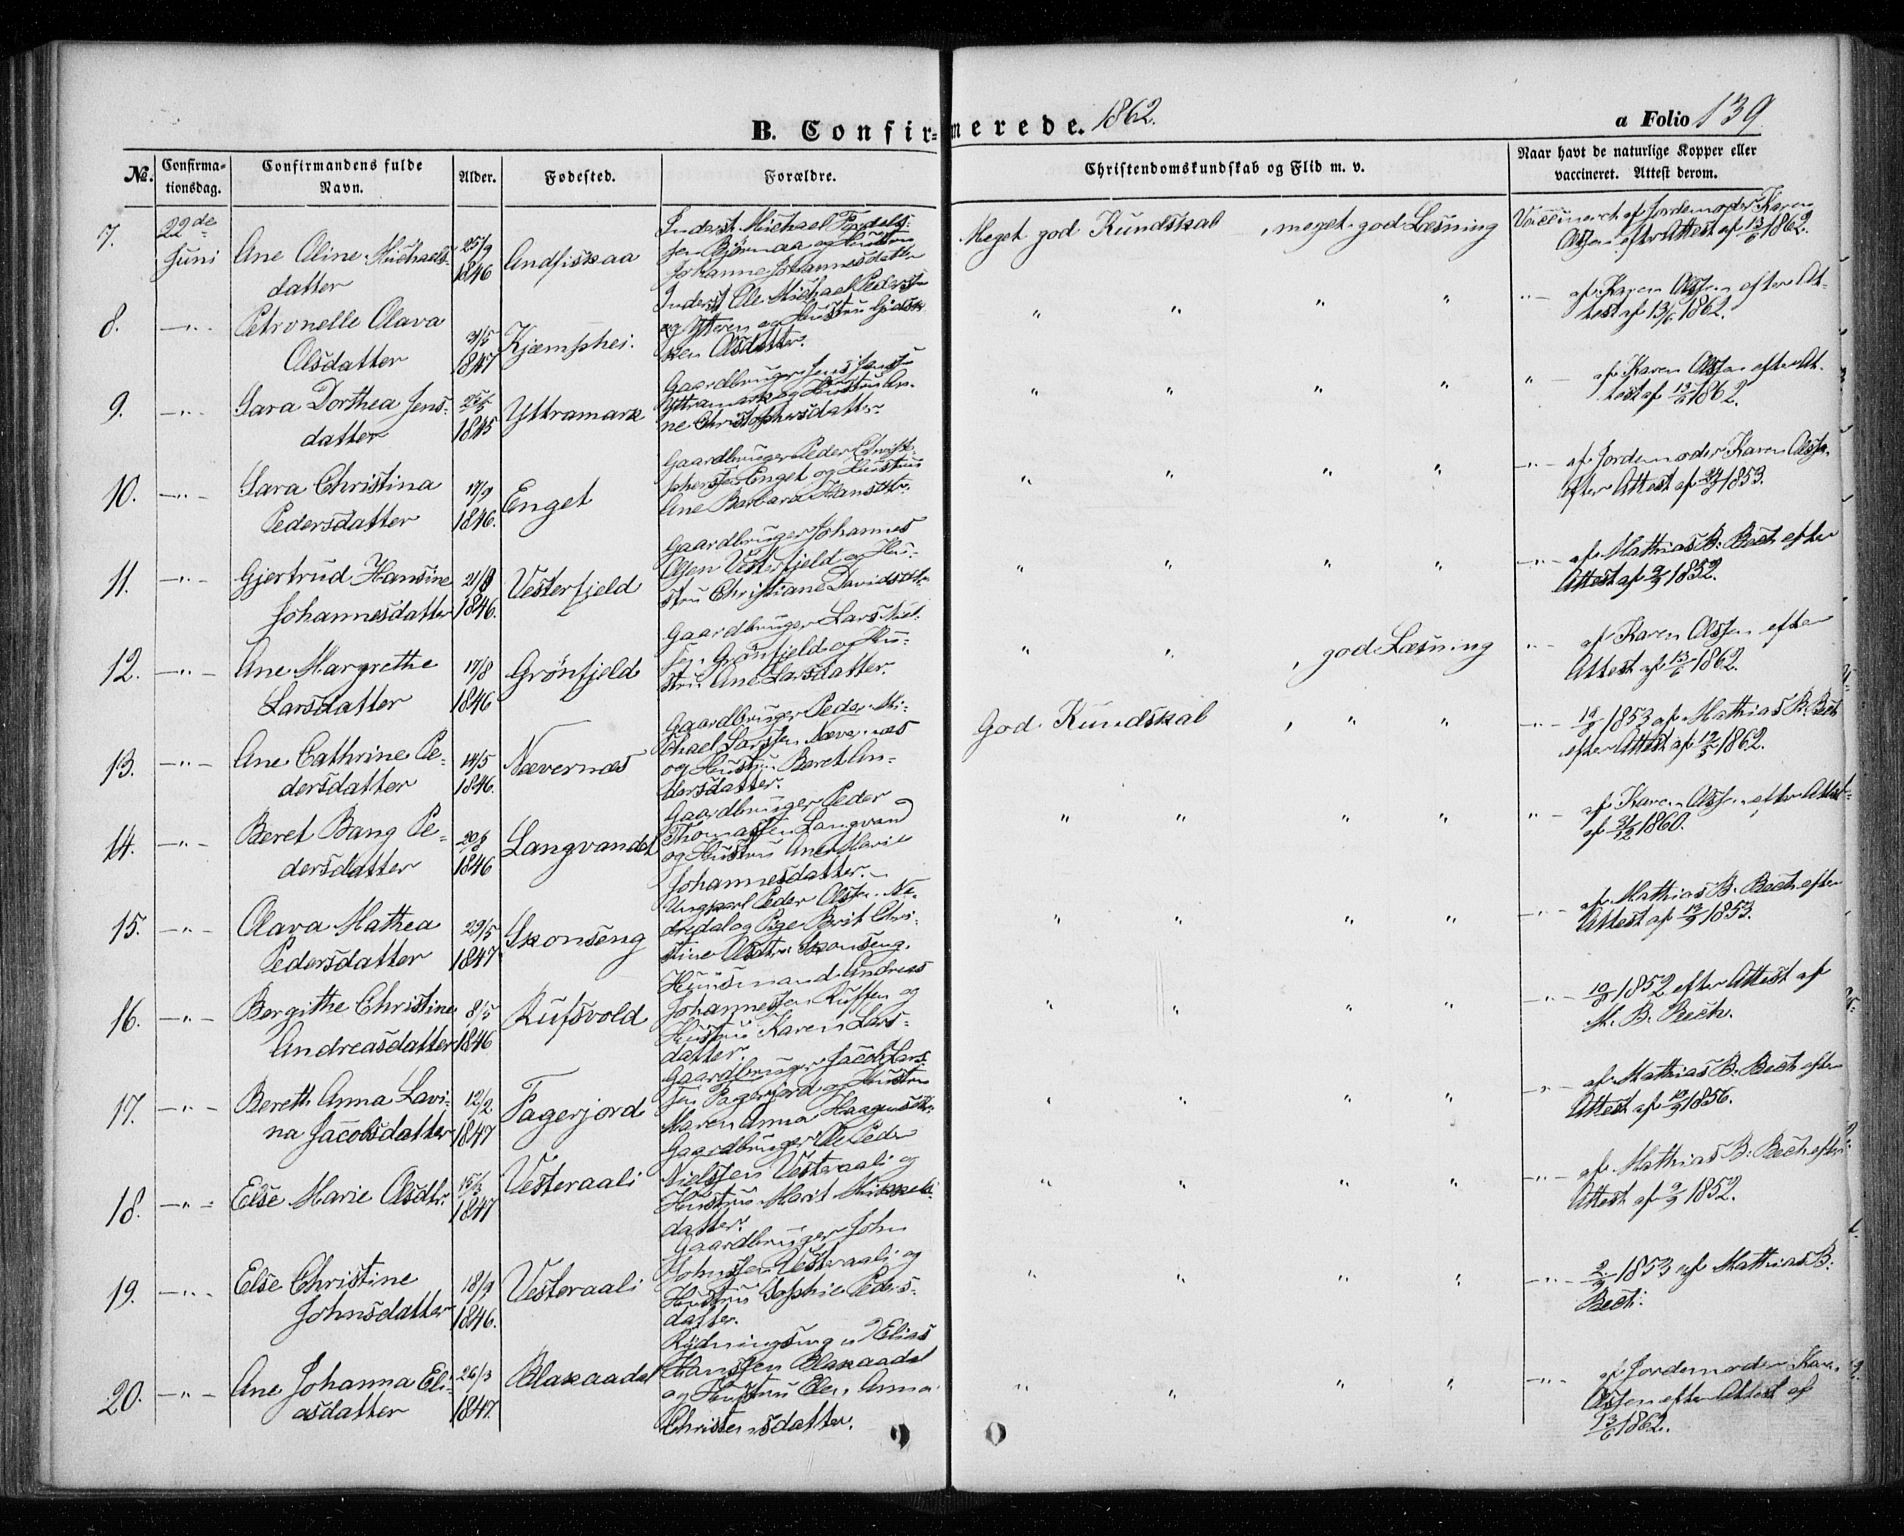 B. Confirmerede. 1862.
a Folio 139
No. Confirmationsdag. Confirmandens fulde Navn. Alder. Fødested. Forældre. Christendomskundskab og Flid m. v. Naar havt de naturlige Kopper eller vaccineret. Attest derom.
7. 22de Juni
Ane Oline Michaels-
datter
25/9 1846
Andfiskaa
Inderst Michael
sen Bjørnaa og Hustru
Johanne Johannesdatter
Meget god Kundskab, meget god Læsning
Vaccineret af Jordemoder Karen
Olssen efter Attest af 13/6 1862.
8. —"—
Petronelle Olava
Olsdatter
1847
Kjæmphei.
Inderst Ole Michael Peders
og Ytteren og Hustru
Olsdatter.
" " " "
"— af Karen Olssen efter At-
test af 13/6 1862.
9. —"—
Sara Dorthea Jens-
datter
1845
Yttramark
Gaardbruger Jens Jens
Yttramark og Hustru An-
ne Christophersdatter
" " " "
"— af Karen Olssen efter At-
test af 13/6 1862.
10. —"—
Sara Christina
Pedersdatter
17/9 1846.
Enget
Gaardbruger Peder Christ-
phersen Enget og Hustru
Ane Barbara Hansdtr.
" " " "
—"— af Jordemoder Karen Olssen
efter Attest af 1853.
11. —"—
Gjertrud Hansine
Johannesdatter
21/8 1846.
Vesterfjeld
Gaardbruger Johannes
Olsen Vesterfjeld og Hu-
stru Christiane Davidsdtr.
" " " "
—"— af Mathias B. Bech efter
Attest af 2/9 1852.
12. —"—
Ane Margrethe
Larsdatter
17/8 1846
Grönfjeld
Gaardbruger Lars Niel-
sen Grönfjeld og Hu-
stru Ane Larsdatter.
" " , god Læsning
"— af Karen Olssen efter
Attest af 13/6 1862.
13. —"—
Ane Cathrine Pe-
dersdatter
14/5 1846.
Nævernæs
Gaardbruger Peder Mi-
chael Larssen Nævernæs
og Hustru Beret An-
dersdatter.
God Kundskab , " "
—"— 1853 af Mathias B. Bech
efter Attest af 1862.
14. —"—
Beret Bang Pe-
dersdatter
20/8 1846
Langvandet
Gaardbruger Peder
Thomassen Langvand
og Hustru Ane Marie
Johannesdatter.
" " " "
"— af Karen Olssen efter Attest
af 31/12 1860.
15. —"—
Olava Mathea
Pedersdatter
29/5 1847
Skonseng
Ungkarl Peder Olssen Ne-
dredal og Pige Berit Chri-
stine Olsdtr. Skonseng.
" " " "
—"— af Mathias B. Bech efter
Attest af 13/9 1853.
16. —"—
Bergithe Christine
Andreasdatter
8/5 1846
Rufsvold
Huusmand Andreas
Johannessen Ruffen og
Hustru Karen Lars-
datter.
" " " "
—"— 1852 efter Attest af
M. B. Bech.
17. —"—
Bereth Anna Lavi-
na Jacobsdatter
12/2 1847
Fagerjord
Gaardbruger Jacob Lars-
sen Fagerjord og Hustru
Maren Anna Haagensdtr.
" " " "
"— af Mathias B. Bech efter
Attest af 1856.
18. —"—
Else Marie Olsdtr.
1847
Vesteraali
Gaardbruger Ole Peder
Nielssen Vesteraali og
Hustru Marit Mikkels-
datter.
" " " "
—"— af Mathias B. Bech efter
Attest af 2/9 1852.
19. —"—
Else Christine
Johnsdatter
18/9 1846.
Vesteraali
Gaardbruger John
Johnssen Vesteraali og
Hustru Sophie Peders-
datter.
" " " "
—"— 2/9 1853 af Mathias B.
Bech.
20. —"—
Ane Johanna Eli-
asdatter
26/3 1847.
Blakaadal
Rydningsmand Elias
Hanssen Blakaadal
og Hustru Elen Anna
Christensdatter.
" " " "
—"— af Jordemoder Karen
Olssen efter Attest af
13/6 1862.